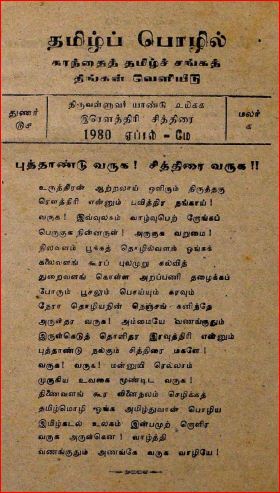 தமிழ்ப் பொழில்
கரந்தைத் தமிழ்ச் சங்கத்
திங்கள் வெளியீடு
துணர்
திருவள்ளுவர் யாண்டு
மலர்
இரௌத்திரி சித்திரை
க
1980 ஏப்ரல் – மே
புத்தாண்டு வருக! சித்திரை வருக!!
உருத்திரன் ஆற்றலாய் ஒளிரும் திருத்தகு
ரௌத்திரி என்னும் பவித்திர நங்காய்!
வருக! இவ்வுலகம் வாழ்வுபெற் றோங்கப்
பெருகுக நின்னருள்! அருகுக வறுமை!
நிலவளம் பூக்கத் தொழில்வளம் ஓங்கக்
கலைவளங் கூரப் புலமுறு கல்வித்
துறைவளங் கொள்ள அறப்பணி தழைக்கப்
போரும் பூசலும் பொய்யும் கரவும்
நேரா தொழியநின் நெஞ்சங் கனிந்தே
அருள்தர வருக! அம்மையே வணங்குதும்
இருள்கெடுத் தொளிதர இரவுத்திரி என்னும்
புத்தாண்டு நல்கும் சித்திரை மகளே!
வருக! வருக! மன்னுயி ரெல்லாம்
முருகிய உவகை மூண்டிட வருக!
தினைவளங் கூர வினைநலம் செழிக்கத்
தமிழ்மொழி ஓங்க அமிழ்துவான் பொழிய
இமிழ்கடல் உலகம் இன்பமுற் றொளிர
வருக அருள்கென! வாழ்த்தி
வணங்குதும் அணங்கே வருக வாழியே!